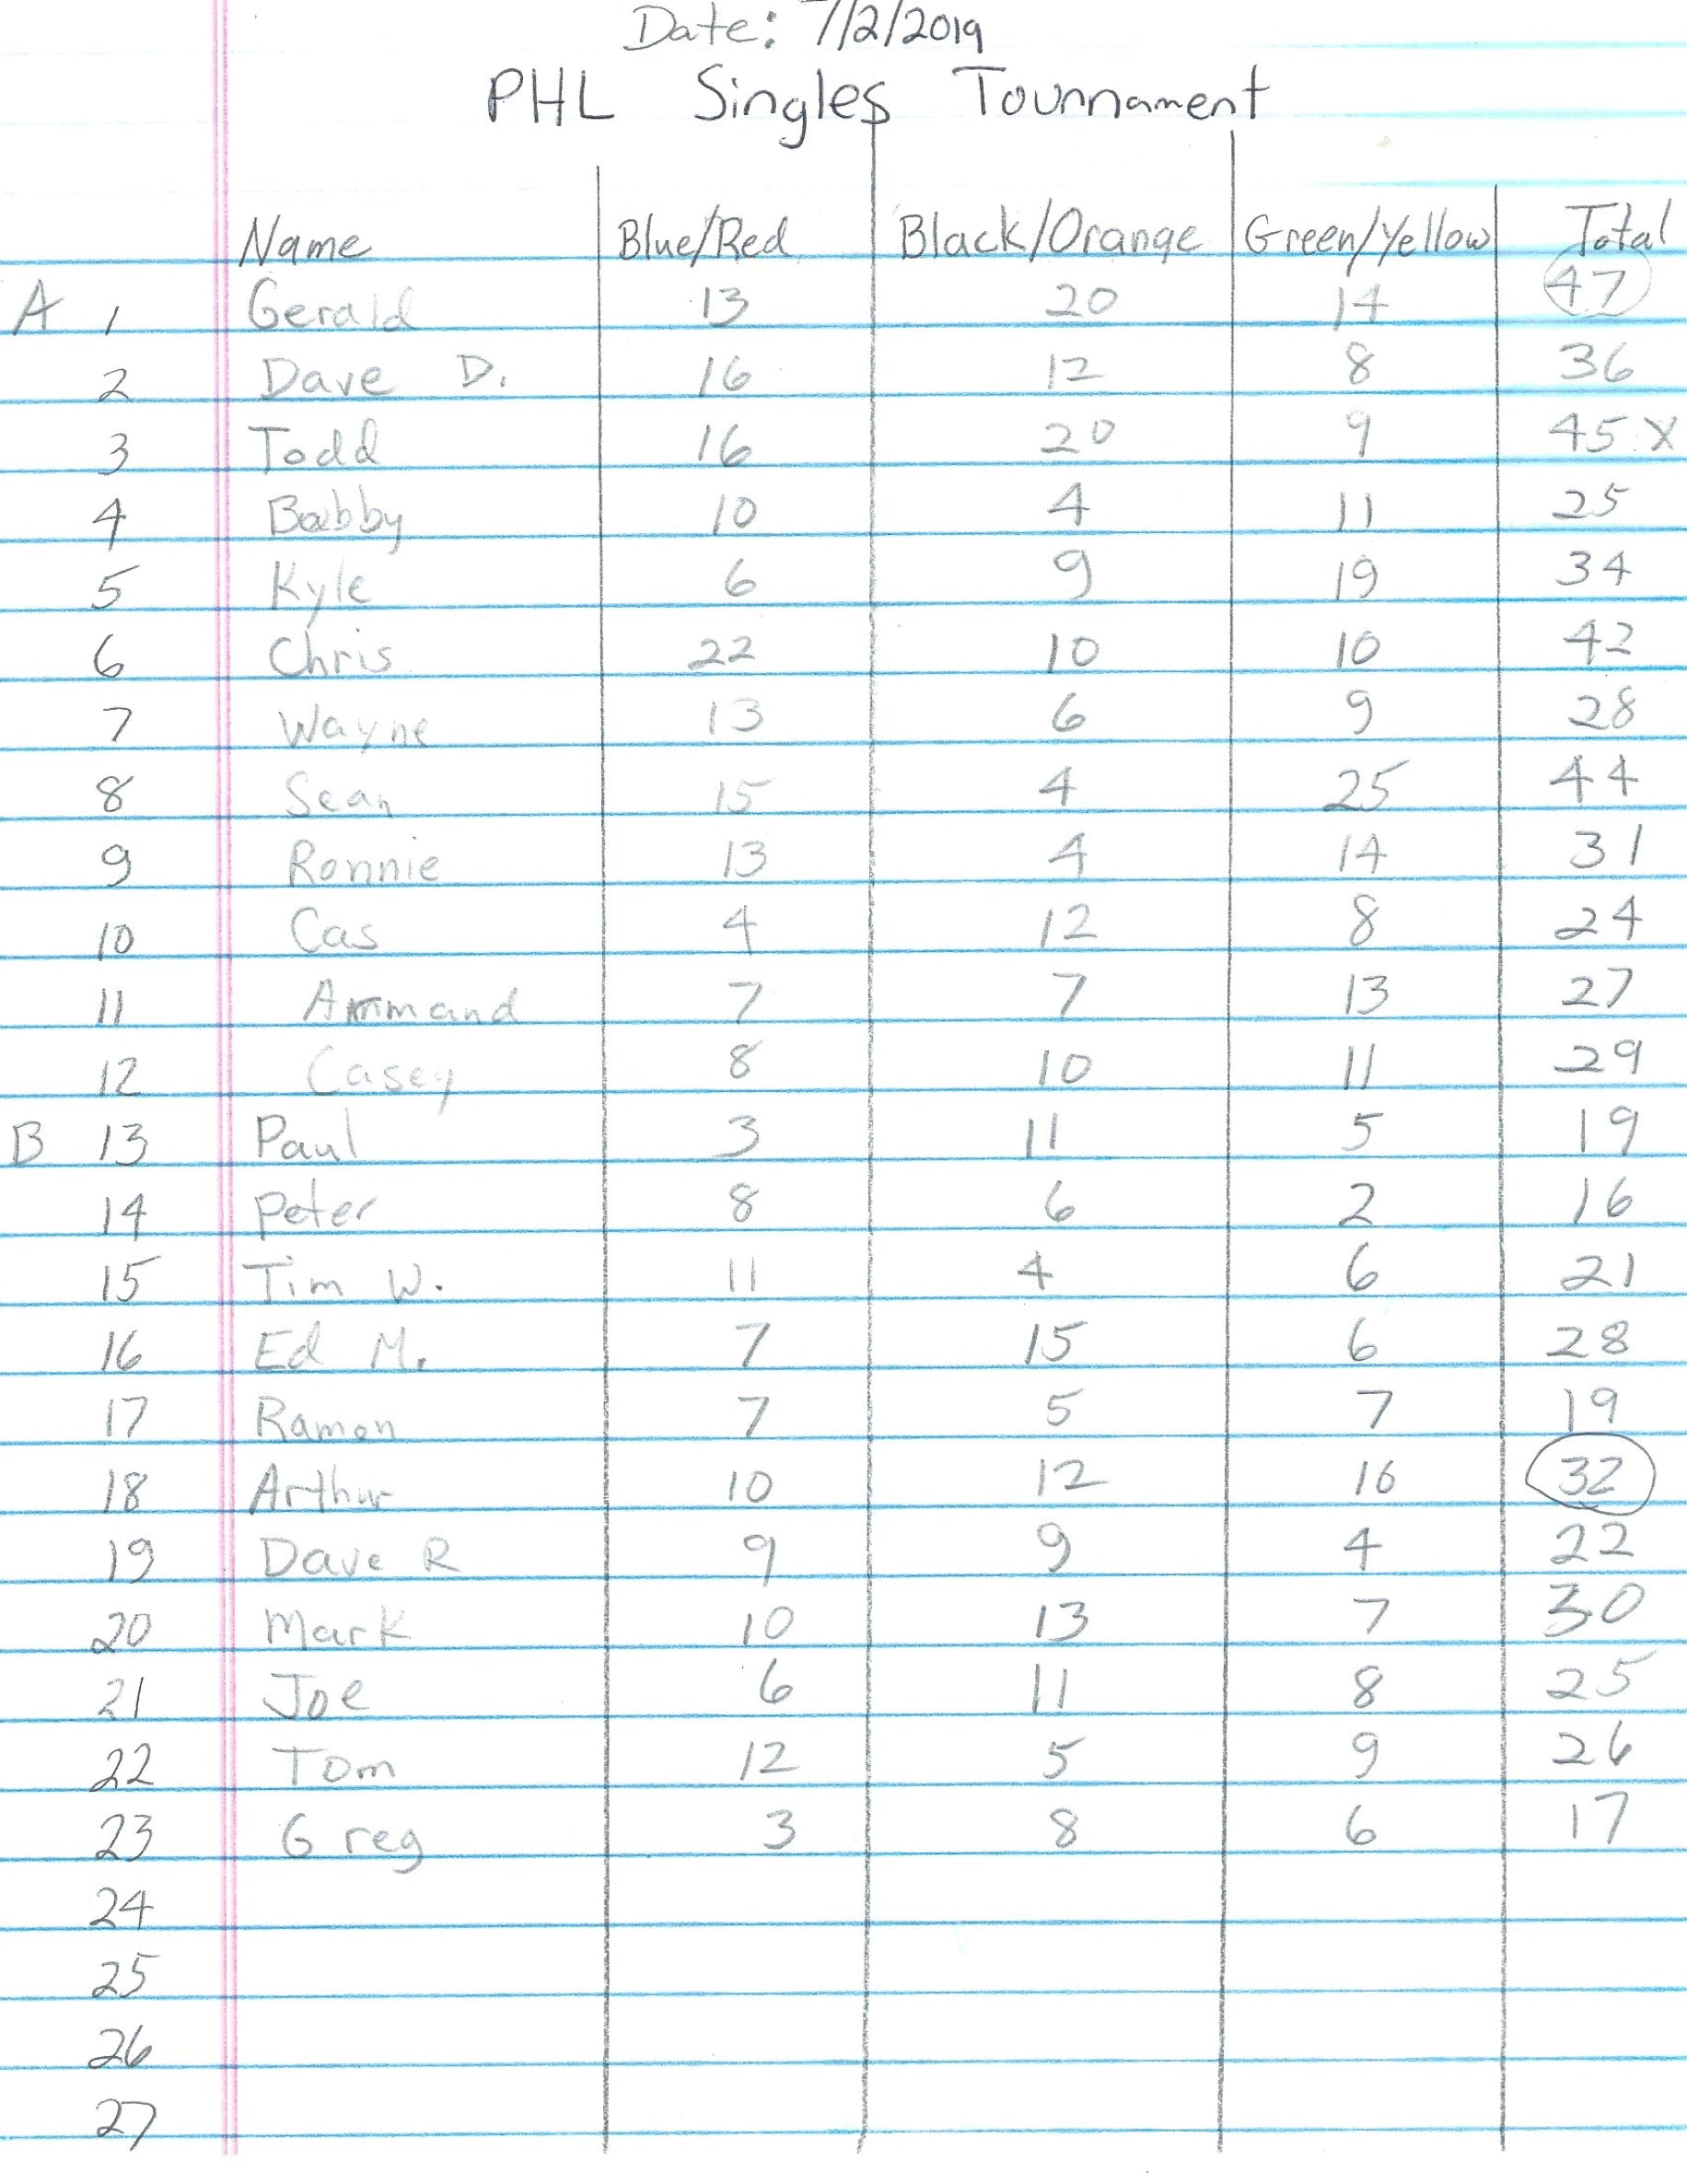 Date: 7/2/2019
PHL Singles Tournament
Name Blue/Red Black/Orange Green/Yellow Total
A 1 Gerald 13 20 14 47
2 Dave D. 16 12 8 36
3 Todd 16 20 9 45 X
4 Bobby 10 4 11 25
5 Kyle 6 9 19 34
6 Chris 22 10 10 42
7 Wayne 13 6 9 28
8 Sean 15 4 25 44
9 Ronnie 13 4 14 31
10 Cas 4 12 8 24
11 Armmand 7 7 13 27
12 Casey 8 10 11 29
B 13 Paul 3 11 5 19
14 Peter 8 6 2 16
15 Tim W. 11 4 6 21
16 Ed M. 7 15 6 28
17 Ramon 7 5 7 19
18 Arthur 10 12 10 32
19 Dave R 9 9 4 22
20 Mark 10 13 7 30
21 Joe 6 11 8 25
22 Tom 12 5 9 26
23 Greg 3 8 6 17
24
25
26
27